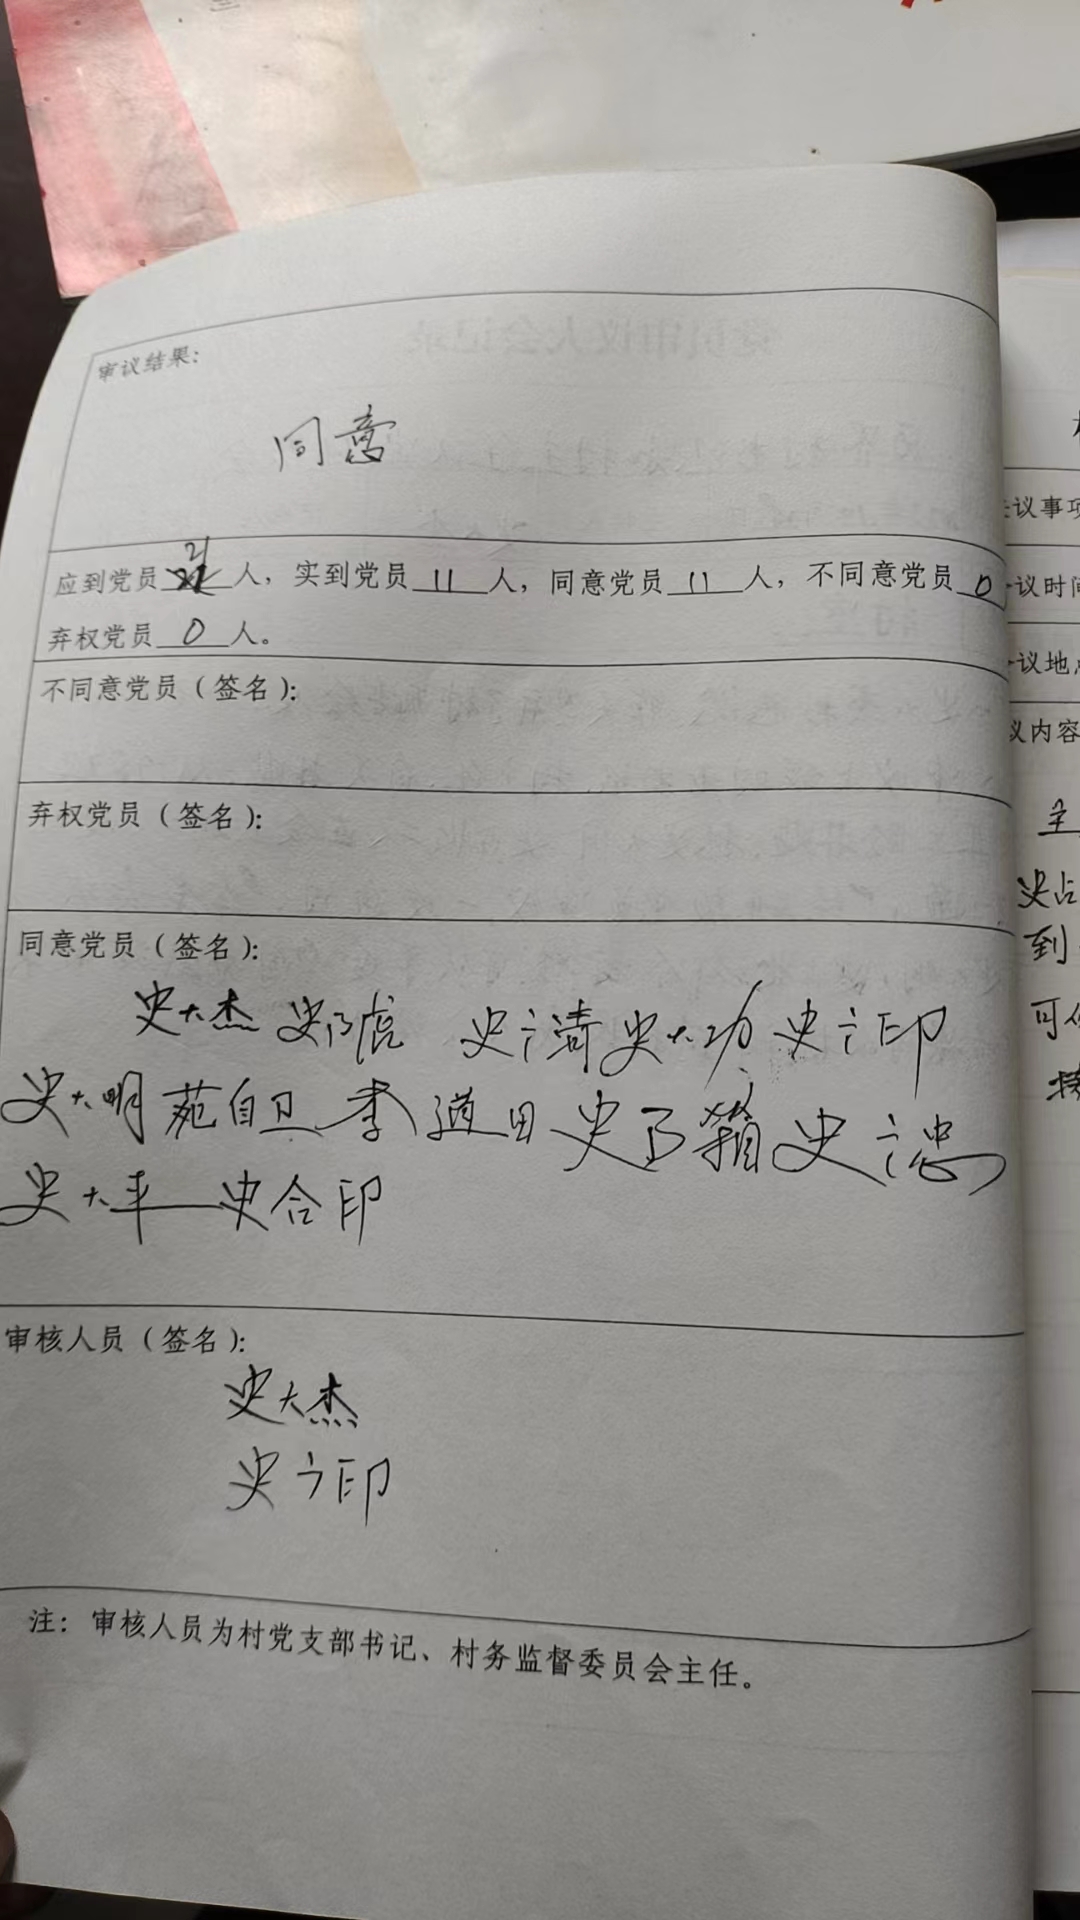 审议结果：
同意
应到党员 21 人，实到党员 11 人，同意党员 11 人，不同意党员 0
弃权党员 0 人。
不同意党员（签名）：
弃权党员（签名）：
同意党员（签名）：
史大杰 史乃虎 史之清 史大功 史之印
史大明 苑自卫 李道田 史乃箱 史之忠
史大平 史合印
审核人员（签名）：
史大杰
史之印
注：审核人员为村党支部书记、村务监督委员会主任。
议事项
议时间
议地点
议内容
主
史占
到